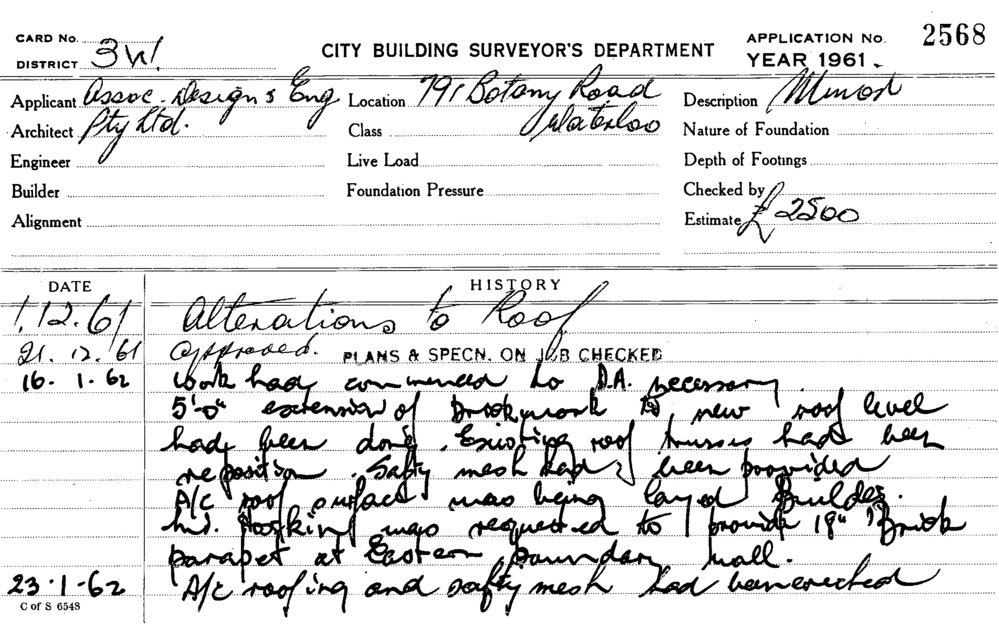 CARD No.
DISTRICT 3W.
CITY BUILDING SURVEYOR'S DEPARTMENT
APPLICATION No. 2568
YEAR 1961.
Applicant Assoc. Design & Eng Location 791 Botany Road Description Minor
Architect Pty Ltd. Class Waterloo Nature of Foundation
Engineer Live Load Depth of Footings
Builder Foundation Pressure Checked by
Alignment Estimate £2500
DATE HISTORY
1.12.61 Alterations to Roof
21.12.61 Approved. PLANS & SPECN. ON JOB CHECKED
16.1.62 Work had commenced no D.A. necessary.
5'-0" extension of brickwork to new roof level
had been done. Existing roof trusses had been
reposition. Safty mesh had been provided
A/c roof surface was being layed Builder.
Mr. was requested to provide 18" Brick
parapet at Eastern boundary wall.
23.1.62 A/c roofing and safty mesh had been erected
C of S 6548